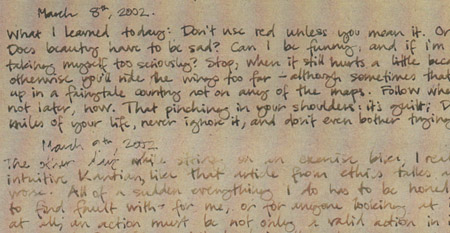 March 8th, 2002.
What I learned today: Don't use red unless you mean it. Or
Does beauty have to be sad? Can I be funny, and if i'm
taking myself too seriously? Stop, when it still hurts a little bec
otherwise you'll ride the wings too far - although sometimes that
up in a fairytale country not on any of the maps. Follow whe
not later, now. That pinching in your shoulders: it's guilt; D
knifes of your life, never ignore it, and don't even bother trying
March 9th, 2002
The other day while sitting on an exercise bike, I rea
intuitive Kantian, like that article from ethics talks a
worse. All of a sudden everything I do has to be hone
to find fault with - for me, or for anyone looking at
at all; an action must be not only a valid action in i